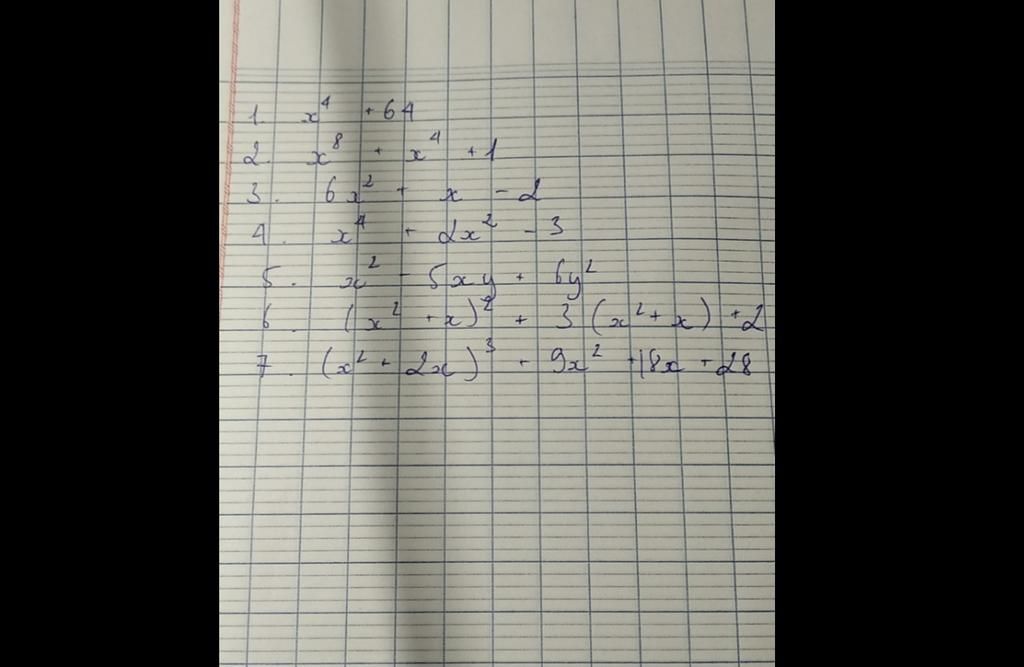 1. x⁴ + 64
2. x⁸ + x⁴ + 1
3. 6x² + x - 2
4. x⁴ + 2x² - 3
5. x² - 5xy + 6y²
6. (x² + x)² + 3(x² + x) + 2
7. (x² + 2x)³ + 9x² + 18x + 28